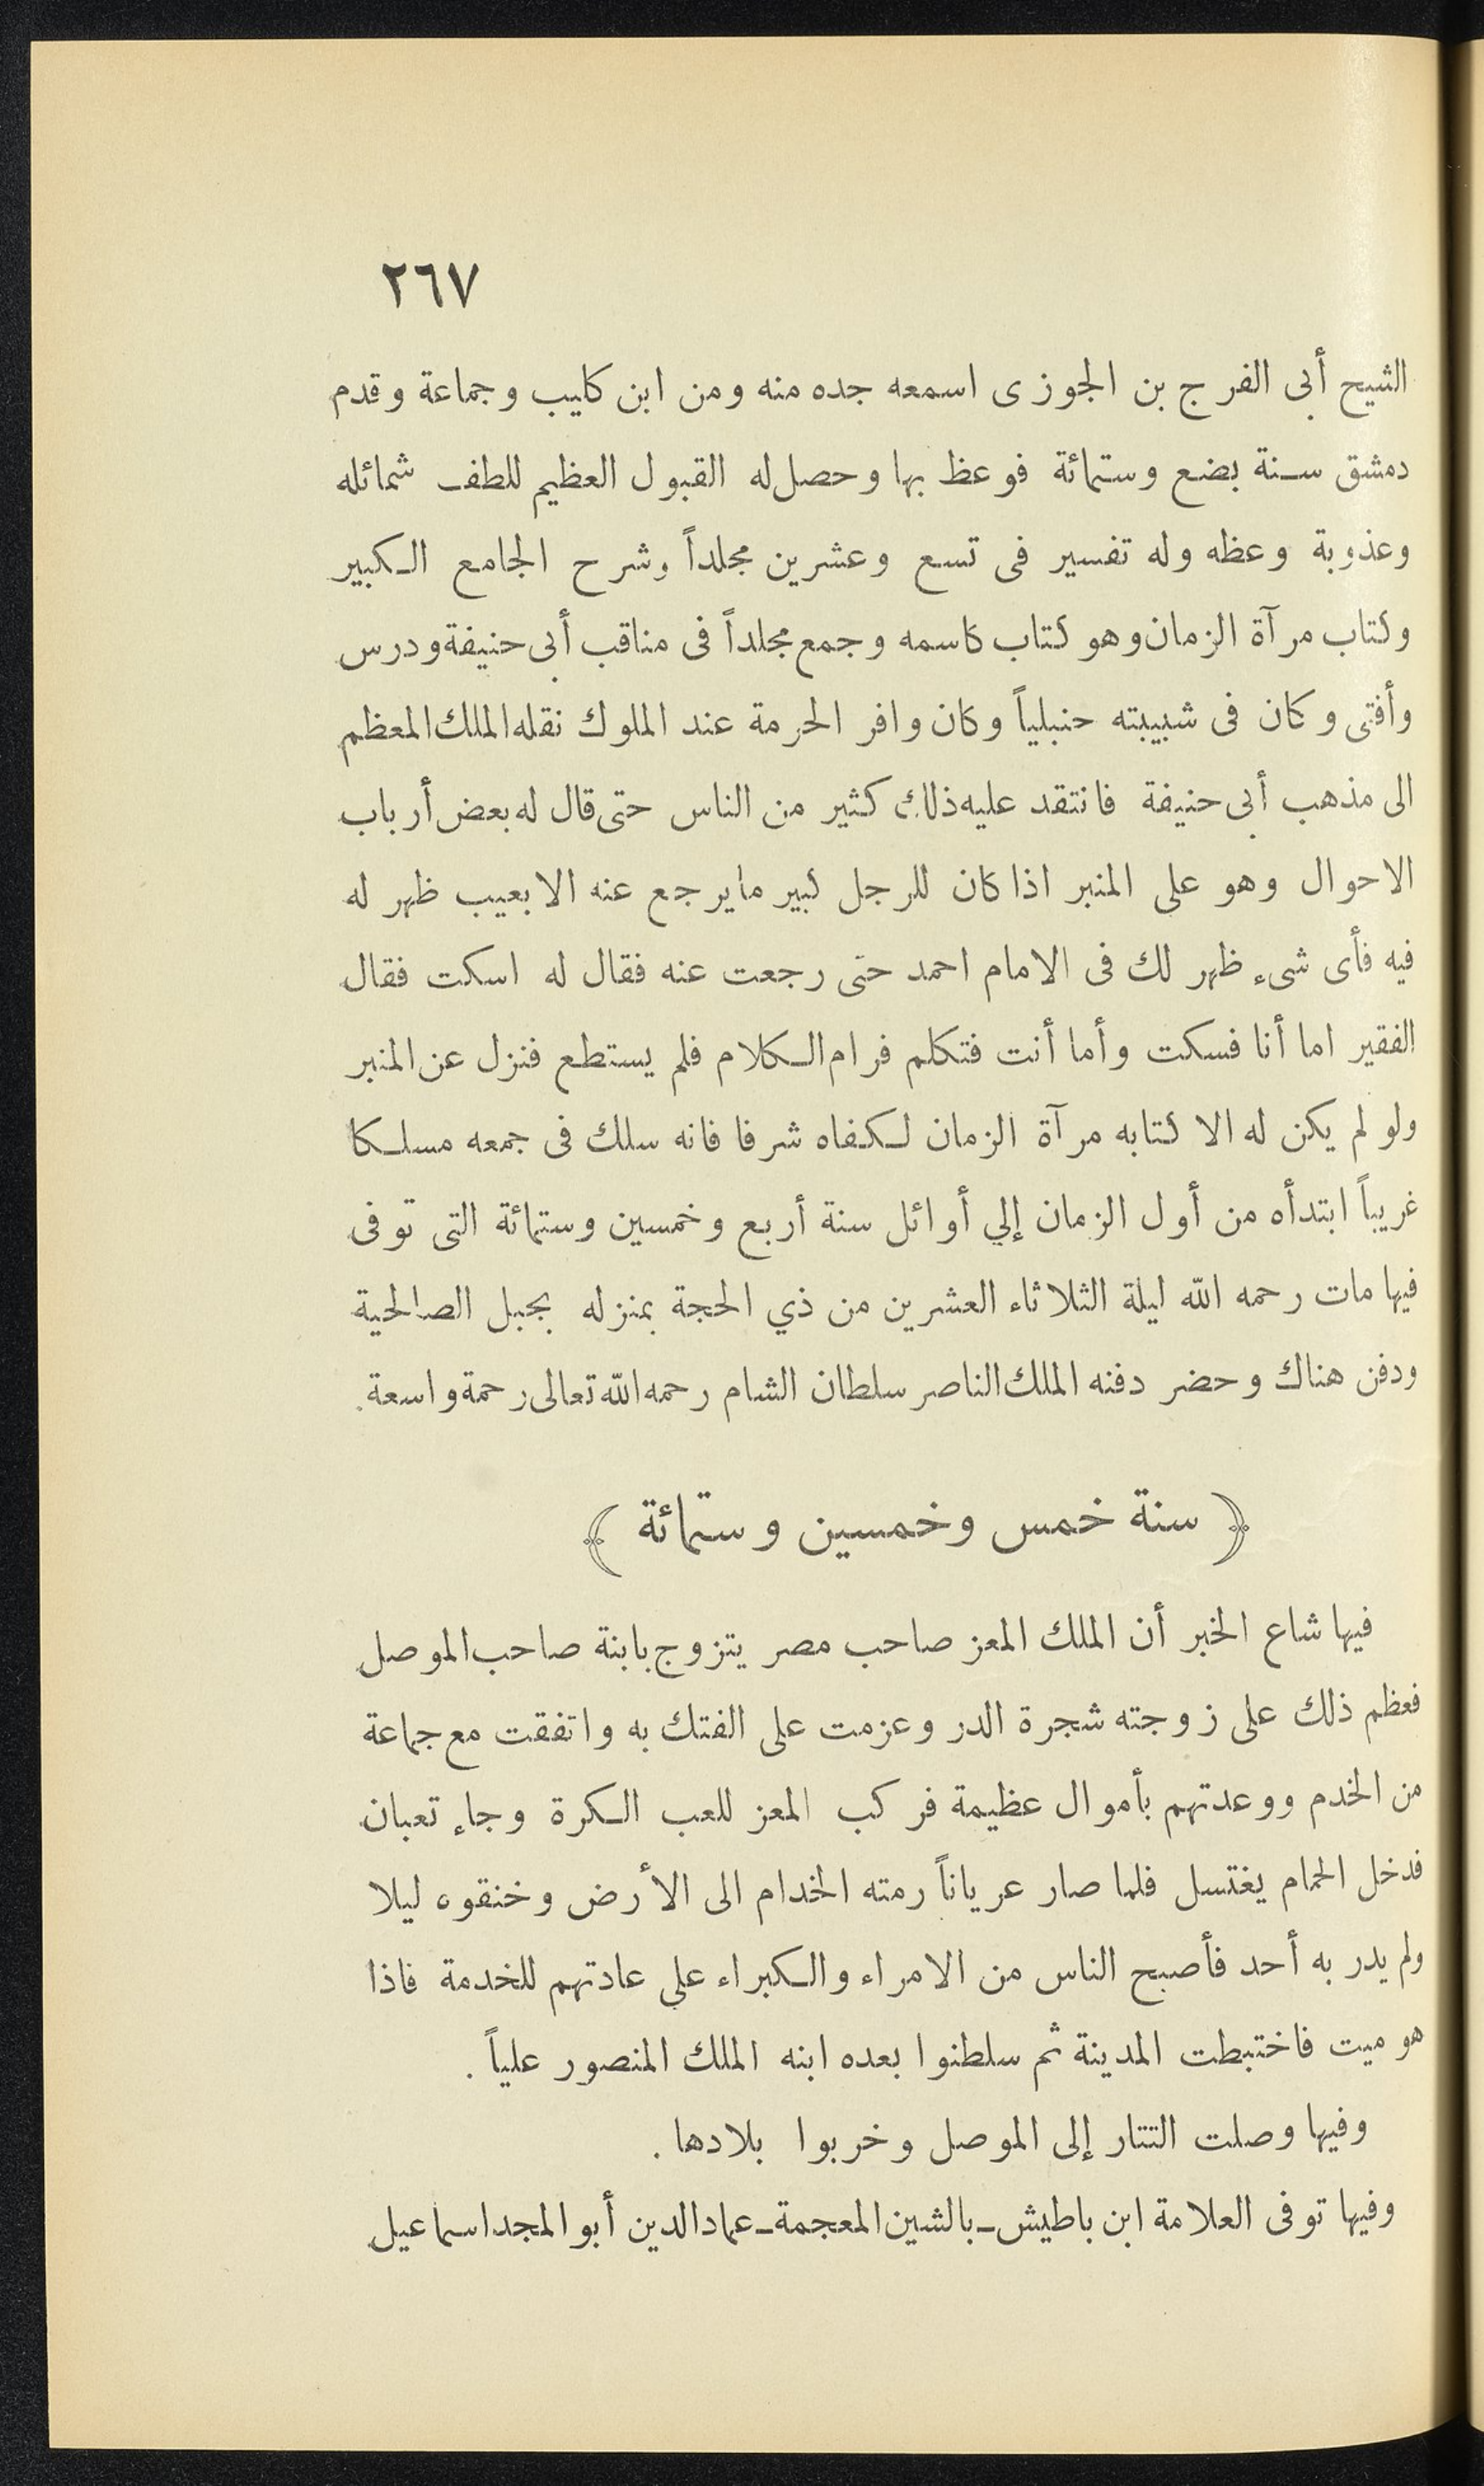 ٢٦٧
الشيح أبى الفرج بن الجوزى اسمعه جده منه ومن ابن كليب وجماعة وقدم
دمشق سنة بضع وستمائة فوعظ بها وحصل له القبول العظيم للطف شمائله
وعذوبة وعظه وله تفسير فى تسع وعشرين مجلداً وشرح الجامع الكبير
وكتاب مرآة الزمان وهو كتاب كاسمه وجمع مجلداً فى مناقب أبى حنيفة ودرس
وأفتى وكان فى شبيبته حنبلياً وكان وافر الحرمة عند الملوك نقله الملك المعظم
الى مذهب أبى حنيفة فانتقد عليه ذلك كثير من الناس حتى قال له بعض أرباب
الاحوال وهو على المنبر اذا كان للرجل كبير ما يرجع عنه الا بعيب ظهر له
فيه فأى شىء ظهر لك فى الامام احمد حتى رجعت عنه فقال له اسكت فقال
الفقير اما أنا فسكت وأما أنت فتكلم فرام الكلام فلم يستطع فنزل عن المنبر
ولو لم يكن له الا كتابه مرآة الزمان لكفاه شرفا فانه سلك فى جمعه مسلكا
غريباً ابتدأه من أول الزمان إلي أوائل سنة أربع وخمسين وستمائة التى توفى
فيها مات رحمه الله ليلة الثلاثاء العشرين من ذي الحجة بمنزله بجبل الصالحية
ودفن هناك وحضر دفنه الملك الناصر سلطان الشام رحمه الله تعالى رحمة واسعة.
﴿ سنة خمس وخمسين وستمائة ﴾
فيها شاع الخبر أن الملك المعز صاحب مصر يتزوج بابنة صاحب الموصل
فعظم ذلك على زوجته شجرة الدر وعزمت على الفتك به واتفقت مع جماعة
من الخدم ووعدتهم بأموال عظيمة فركب المعز للعب الكرة وجاء تعبان
فدخل الحمام يغتسل فلما صار عرياناً رمته الخدام الى الأرض وخنقوه ليلا
ولم يدر به أحد فأصبح الناس من الامراء والكبراء على عادتهم للخدمة فاذا
هو ميت فاختبطت المدينة ثم سلطنوا بعده ابنه الملك المنصور علياً .
وفيها وصلت التتار إلى الموصل وخربوا بلادها .
وفيها توفى العلامة ابن باطيش ـ بالشين المعجمة ـ عماد الدين أبو المجد اسماعيل